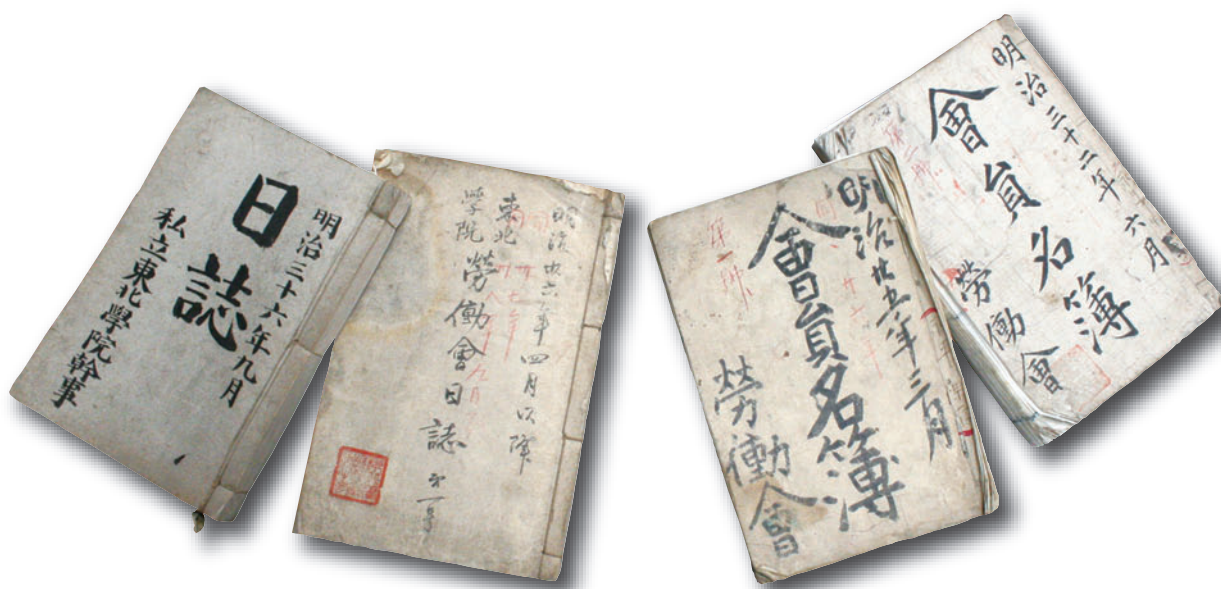 明治三十六年九月
日誌
私立東北學院幹事
明治廿六年四月以降
東北
學院
勞働會日誌
明治廿五年三月
會員名簿
勞働會
第一號
明治三十二年六月
會員名簿
勞働會